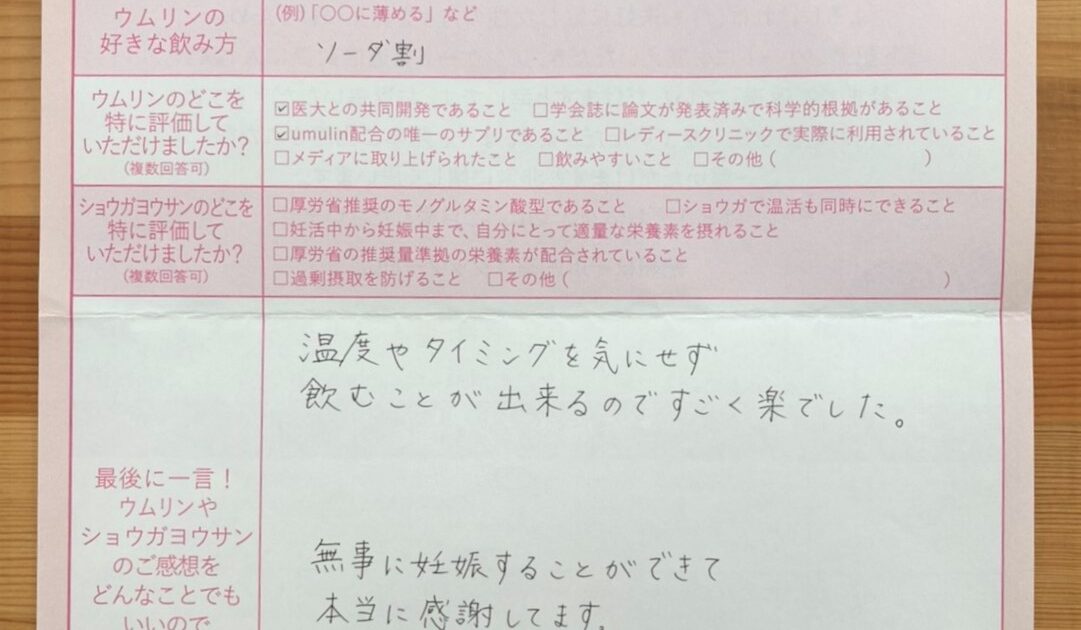 ウムリンの
好きな飲み方
(例)「〇〇に薄める」など
ソーダ割
ウムリンのどこを
特に評価して
いただけましたか?
(複数回答可)
☑医大との共同開発であること □学会誌に論文が発表済みで科学的根拠があること
☑umulin配合の唯一のサプリであること □レディースクリニックで実際に利用されていること
□メディアに取り上げられたこと □飲みやすいこと □その他( )
ショウガヨウサンのどこを
特に評価して
いただけましたか?
(複数回答可)
□厚労省推奨のモノグルタミン酸型であること □ショウガで温活も同時にできること
□妊活中から妊娠中まで、自分にとって適量な栄養素を摂れること
□厚労省の推奨量準拠の栄養素が配合されていること
□過剰摂取を防げること □その他( )
最後に一言!
ウムリンや
ショウガヨウサン
のご感想を
どんなことでも
いいので
温度やタイミングを気にせず
飲むことが出来るのですごく楽でした。
無事に妊娠することができて
本当に感謝してます。